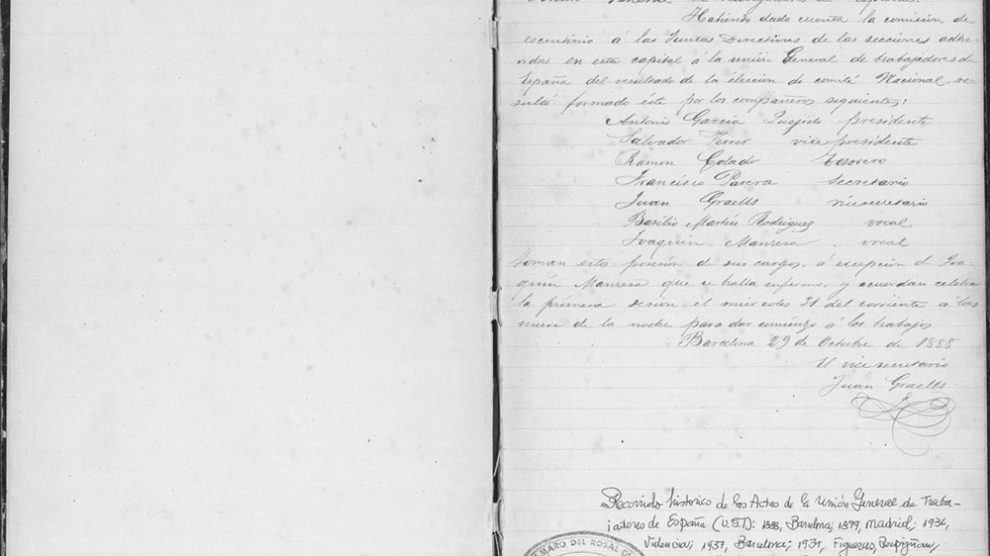 General de trabajadores de España.
Habiendo dado cuenta la comisión de
escrutinio á las Juntas Directivas de las secciones adhe-
ridas en esta capital á la unión General de trabajadores de
España del resultado de la elección de comité Nacional, re-
sultó formado éste por los compañeros siguientes:
Antonio García Quejido presidente
Salvador Ferrer vice presidente
Ramon Colado tesorero
Francisco Parera secretario
Juan Graells vicesecretario
Basilio Martín Rodriguez vocal
Joaquín Manresa vocal
toman estos posesión de sus cargos, á excepción de Joa-
quín Manresa que se halla enfermo, y acuerdan celebrar
la primera sesión el miércoles 31 del corriente a las
nueve de la noche para dar comienzo á los trabajos
Barcelona 29 de Octubre de 1888
El vicesecretario
Juan Graells
Recorrido historico de las Actas de la Unión General de Traba-
jadores de España (U.G.T): 1888, Barcelona; 1899, Madrid; 1936,
Valencia; 1937, Barcelona; 1939, Figueras, Perpiñan,
AMARO DEL ROSAL